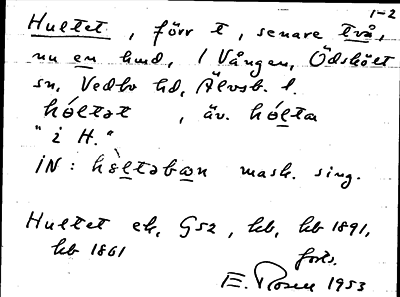 1-2
Hultet, förr t, senare två,
nu en hmd, / Vången, Ödskölt
sn, Vedbo hd, Älvsb. l.
hóltət, äv. hólta
"i H."
IN: hòltəbən mask. sing.
Hultet ek, G52, hb, hb 1891,
hb 1861 forts.
E. Rosen 1953